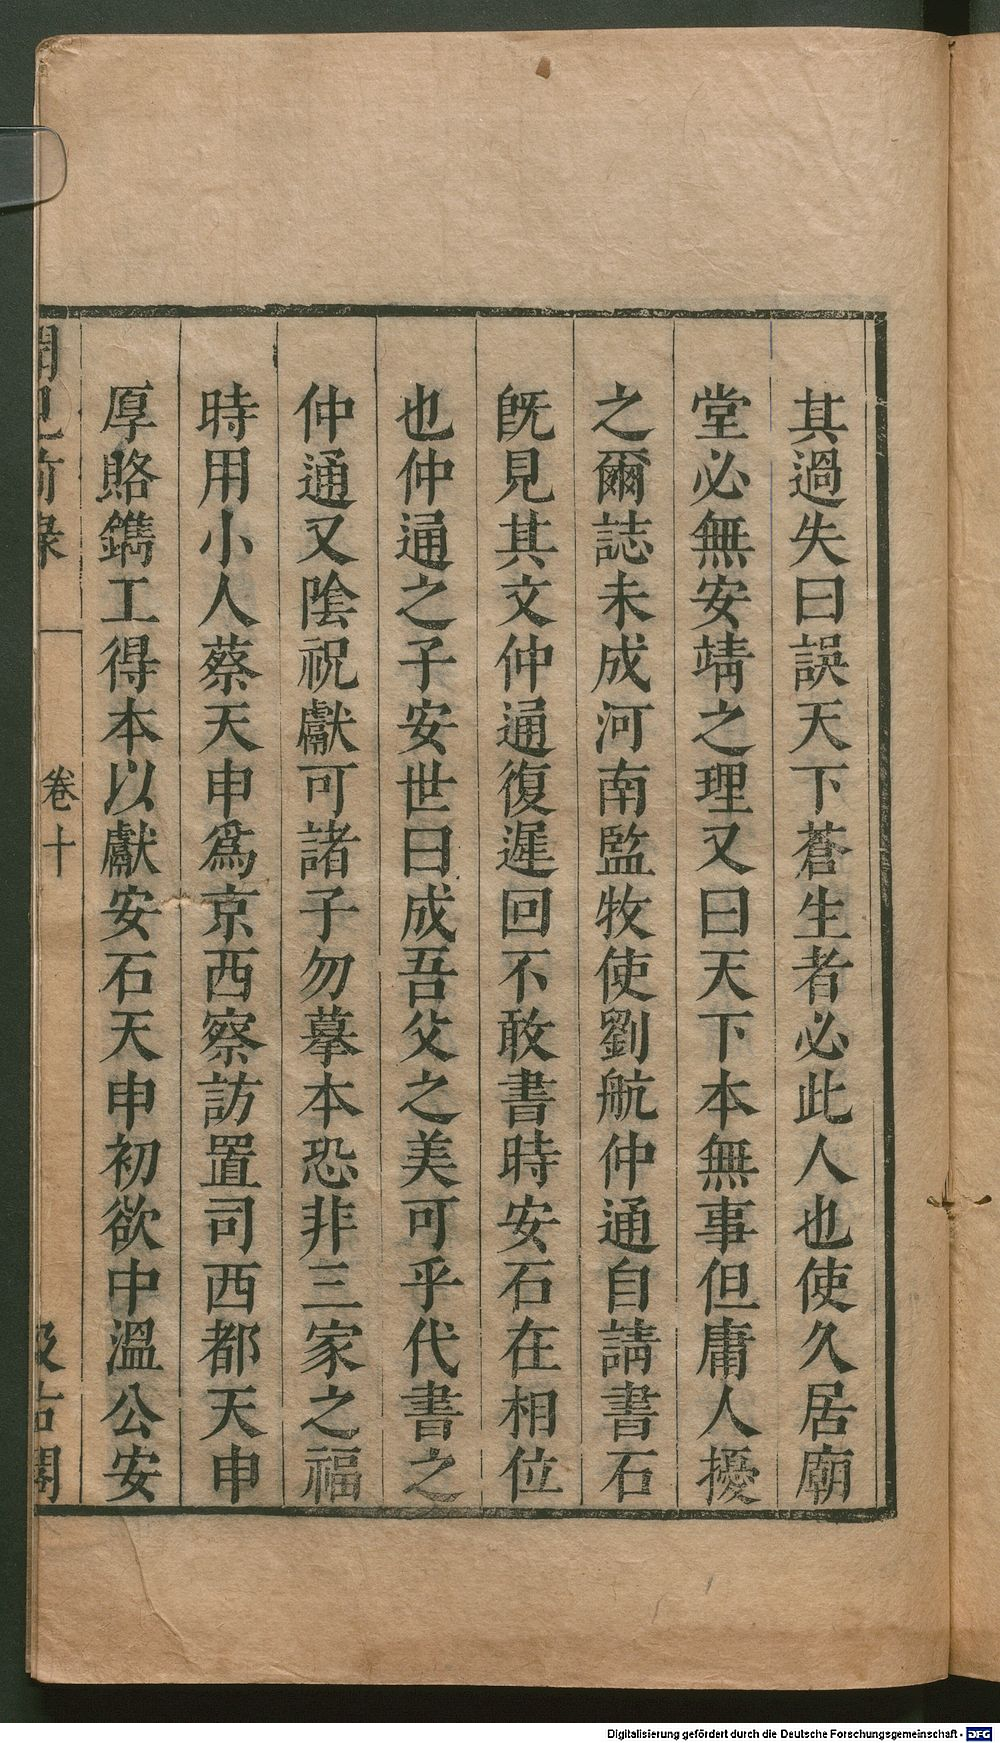 其過失曰誤天下蒼生者必此人也使久居廟
堂必無安靖之理又曰天下本無事但庸人擾
之爾誌未成河南監牧使劉航仲通自請書石
旣見其文仲通復遲回不敢書時安石在相位
也仲通之子安世曰成吾父之美可乎代書之
仲通又陰祝獻可諸子勿摹本恐非三家之福
時用小人蔡天申爲京西察訪置司西都天申
厚賂鐫工得本以獻安石天申初欲中溫公安
聞見前錄
卷十
汲古閣
Digitalisierung gefördert durch die Deutsche Forschungsgemeinschaft - DFG